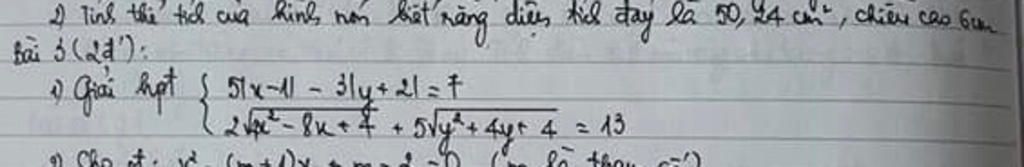 2) Tính thể tích của hình nón biết rằng diện tích đáy là 50,24 cm², chiều cao 6cm
Bài 3 (2đ'):
1) Giải hpt { 5|x-1| - 3|y+2| = 7
2√4x² - 8x + 4 + 5√y² + 4y + 4 = 13
2) Cho pt: x² - (m+1)x + m - 2 = 0 (m là tham số)